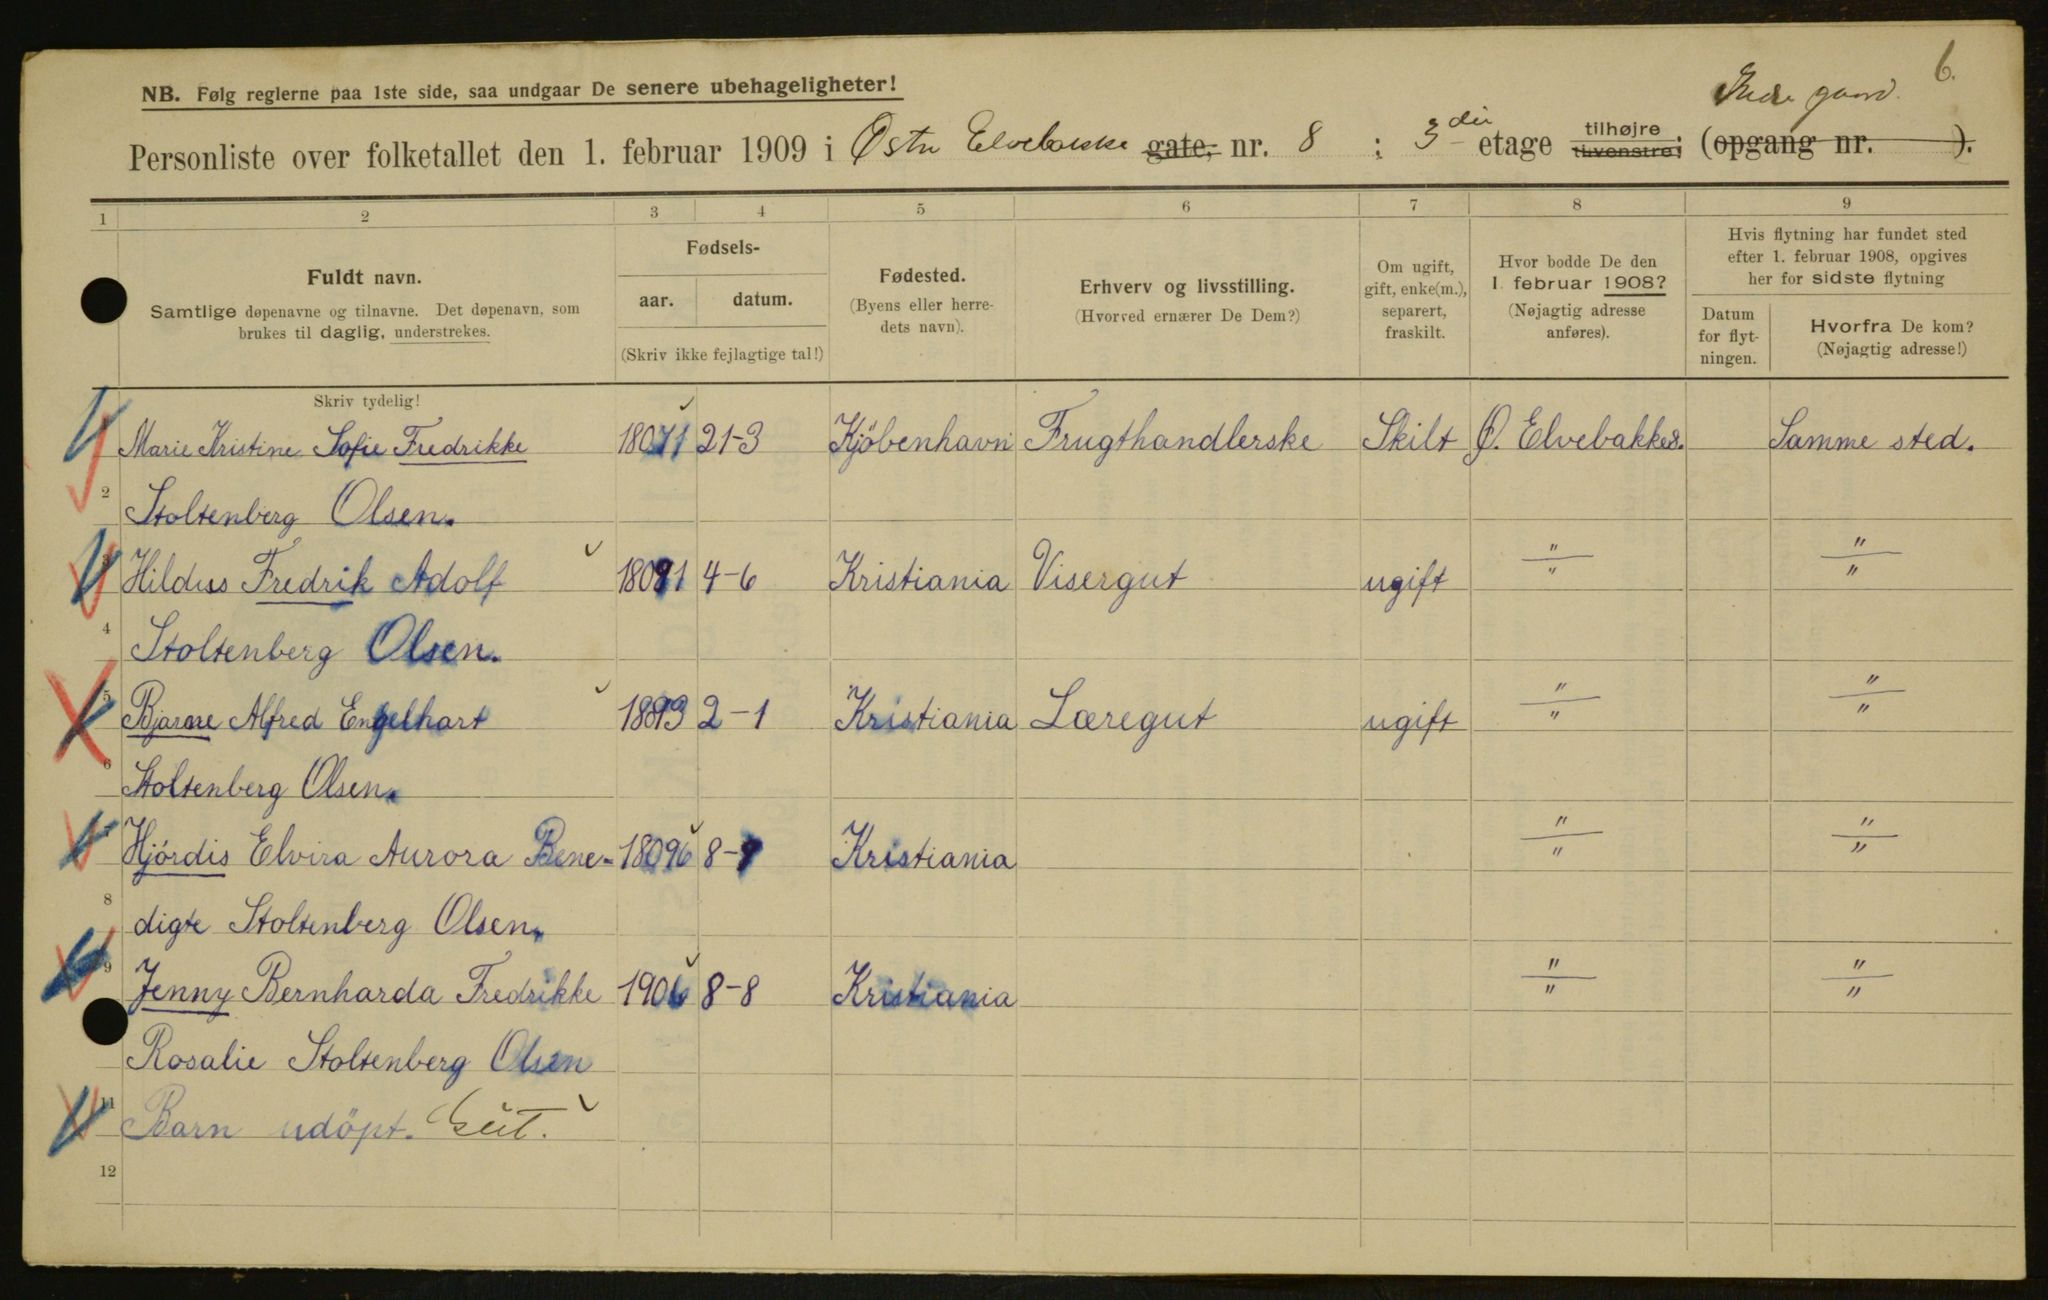 6.
NB. Følg reglerne paa 1ste side, saa undgaar De senere ubehageligheter!
gaard.
Personliste over folketallet den 1. februar 1909 i Østre Elvebakke gate, nr. 8 ; 3die etage tilhøjre tilvenstre; (opgang nr. ).
1 2 3 4 5 6 7 8 9
Fuldt navn.
Samtlige døpenavne og tilnavne. Det døpenavn, som
brukes til daglig, understrekes.
Fødsels-
aar. datum.
(Skriv ikke fejlagtige tal!)
Fødested.
(Byens eller herre-
dets navn).
Erhverv og livsstilling.
(Hvorved ernærer De Dem?)
Om ugift,
gift, enke(m.),
separert,
fraskilt.
Hvor bodde De den
1. februar 1908?
(Nøjagtig adresse
anføres).
Hvis flytning har fundet sted
efter 1. februar 1908, opgives
her for sidste flytning
Datum
for flyt-
ningen.
Hvorfra De kom?
(Nøjagtig adresse!)
Skriv tydelig!
Marie Kristine Sofie Fredrikke 1871 21-3 Kjöbenhavn Frugthandlerske Skilt Ø. Elvebakke 8. Samme sted.
2 Stoltenberg Olsen.
3 Hildus Fredrik Adolf 1891 4-6 Kristiania Visergut ugift " " " "
4 Stoltenberg Olsen.
5 Bjarne Alfred Engelhart 1893 2-1 Kristiania Læregut ugift " " " "
6 Stoltenberg Olsen.
7 Hjördis Elvira Aurora Bene- 1896 8-9 Kristiania " " " "
8 digte Stoltenberg Olsen.
9 Jenny Bernharda Fredrikke 1906 8-8 Kristiania " " " "
Rosalie Stoltenberg Olsen
11 Barn udöpt. Gut.
12